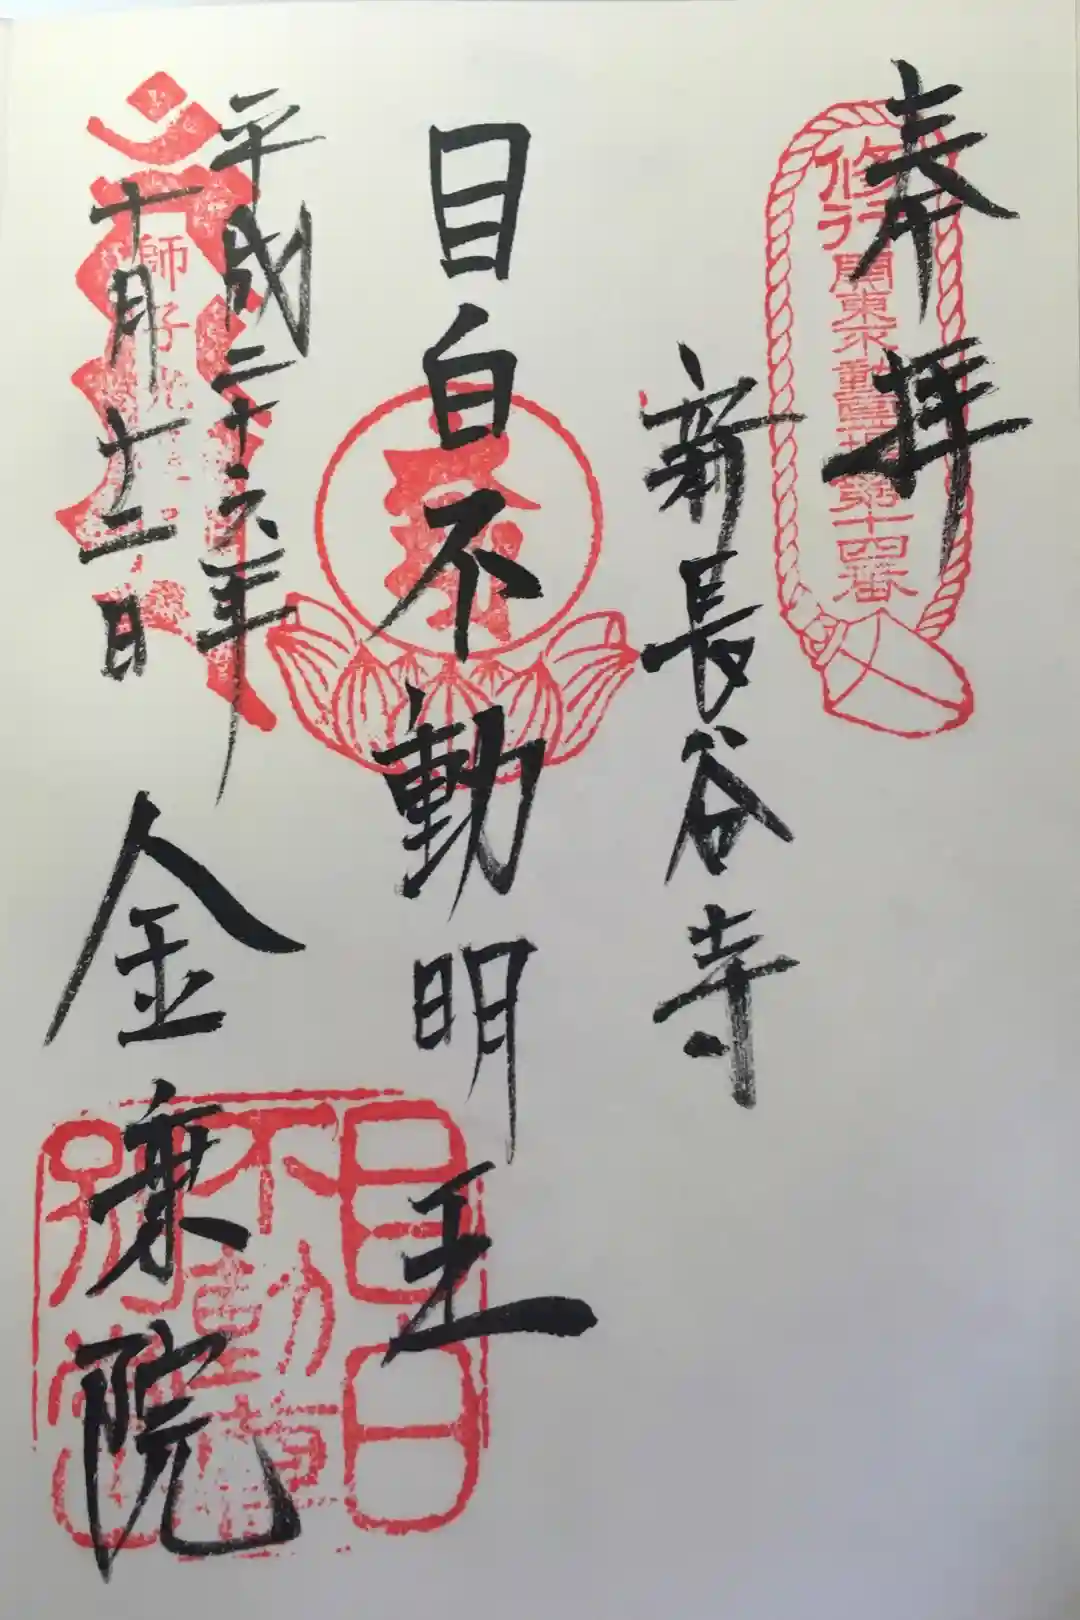 奉拝
修行
関東不動霊場第十四番
新長谷寺
目白不動明王
平成二十六年
十月十二日
師子光
金乗院
目白
不動